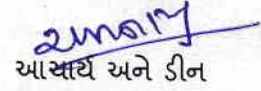 આચાર્ય અને ડીન